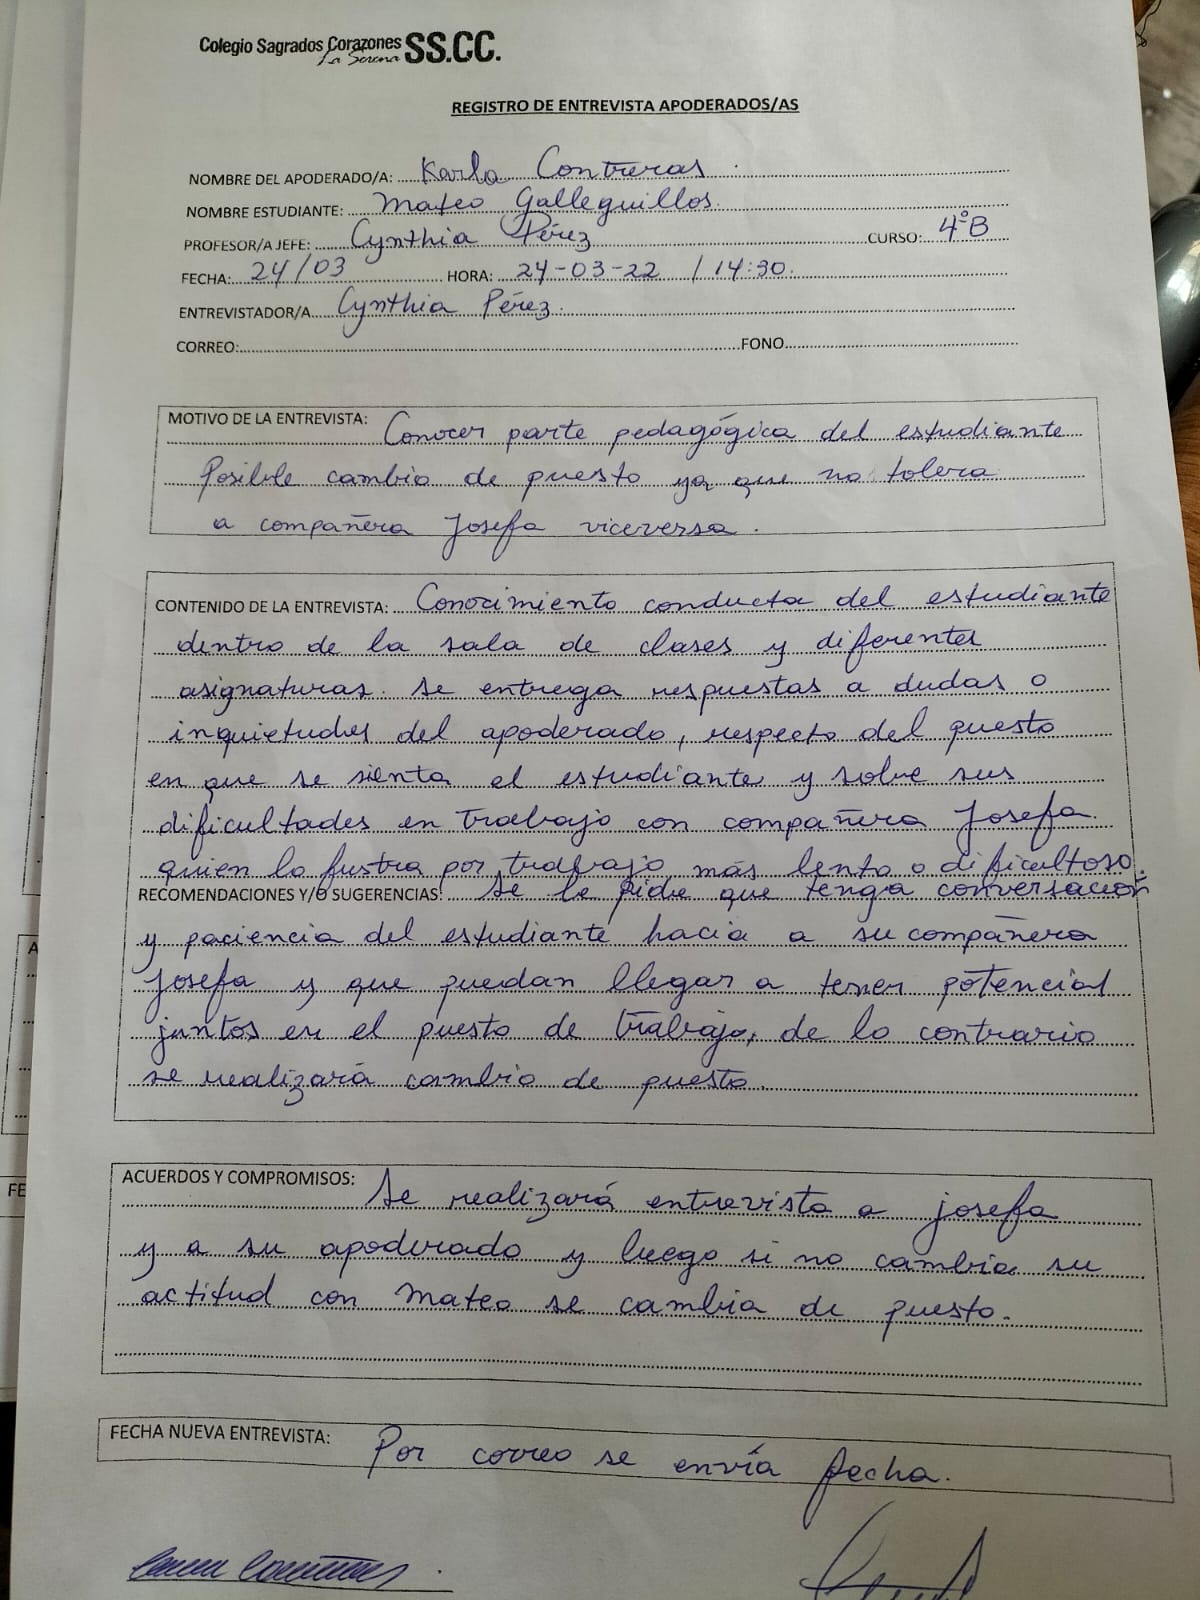 Colegio Sagrados Corazones SS.CC.
La Serena
REGISTRO DE ENTREVISTA APODERADOS/AS
NOMBRE DEL APODERADO/A: Karla Contreras
NOMBRE ESTUDIANTE: Mateo Galleguillos.
PROFESOR/A JEFE: Cynthia Pérez CURSO: 4°B
FECHA: 24/03 HORA: 24-03-22 / 14:30.
ENTREVISTADOR/A Cynthia Pérez.
CORREO: FONO
MOTIVO DE LA ENTREVISTA: Conocer parte pedagógica del estudiante
Posible cambio de puesto ya que no tolera
a compañera Josefa viceversa.
CONTENIDO DE LA ENTREVISTA: Conocimiento conducta del estudiante
dentro de la sala de clases y diferentes
asignaturas. Se entrega respuestas a dudas o
inquietudes del apoderado, respecto del puesto
en que se sienta el estudiante y sobre sus
dificultades en trabajo con compañera Josefa.
quien lo fustra por trabajo más lento o dificultoso.
RECOMENDACIONES Y/O SUGERENCIAS: Se le pide que tenga conversación
y paciencia del estudiante hacia a su compañera
Josefa y que puedan llegar a tener potencial
juntos en el puesto de trabajo, de lo contrario
se realizará cambio de puesto.
ACUERDOS Y COMPROMISOS: Se realizará entrevista a josefa
y a su apoderado y luego si no cambia su
actitud con Mateo se cambia de puesto.
FECHA NUEVA ENTREVISTA: Por correo se envía fecha.